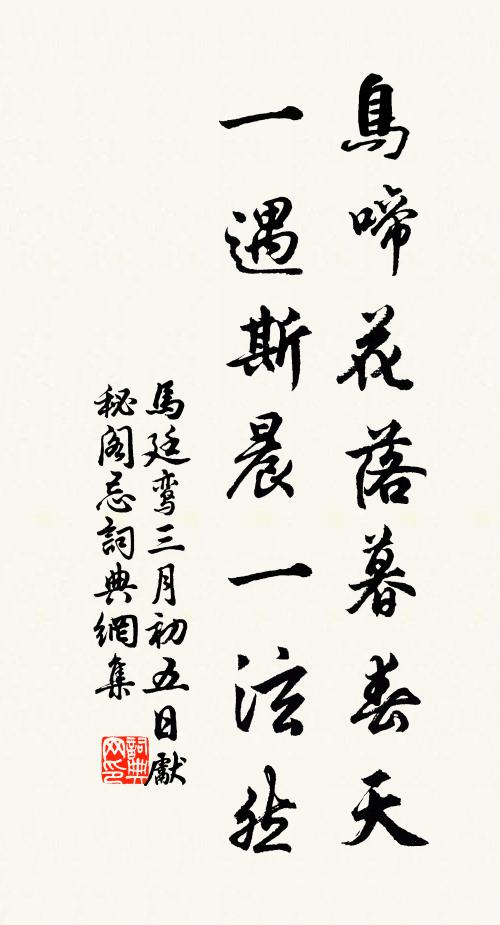 鳥啼花落暮春天
一遇斯晨一泫然
馬廷鸞三月初五日獻
秘閣忌詞典網集
詞典
网印